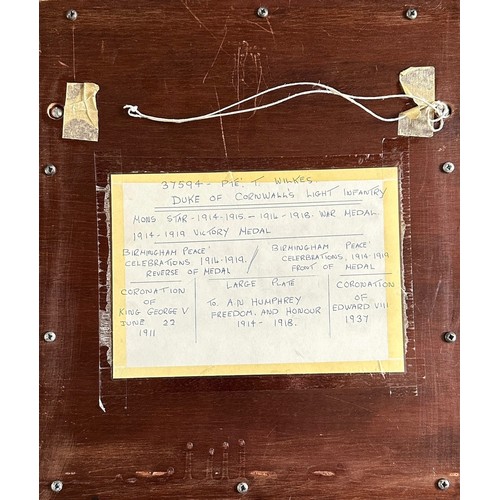 37594 - PTE. T. WILKES
DUKE OF CORNWALL'S LIGHT INFANTRY
MONS STAR - 1914-1915 - 1914-1918. WAR MEDAL
1914-1919 VICTORY MEDAL
BIRMINGHAM PEACE
CELEBRATIONS. 1914-1919.
REVERSE OF MEDAL
BIRMINGHAM PEACE
CELERBRATIONS, 1914-1919
FRONT OF MEDAL
CORONATION
OF
KING GEORGE V
JUNE 22
1911
LARGE PLATE
TO. A.N HUMPHREY
FREEDOM. AND HONOUR
1914 - 1918.
CORONATION
OF
EDWARD VIII
1937